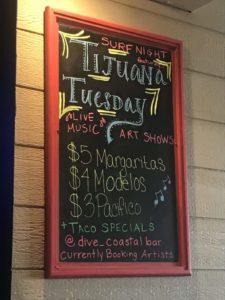 SURF NIGHT
TIJUANA
TUESDAY
LIVE
MUSIC
ART SHOWS
$5 Margaritas
$4 Modelos
$3 Pacifico
+ TACO SPECIALS
@ dive_coastal bar
Currently Booking Artists